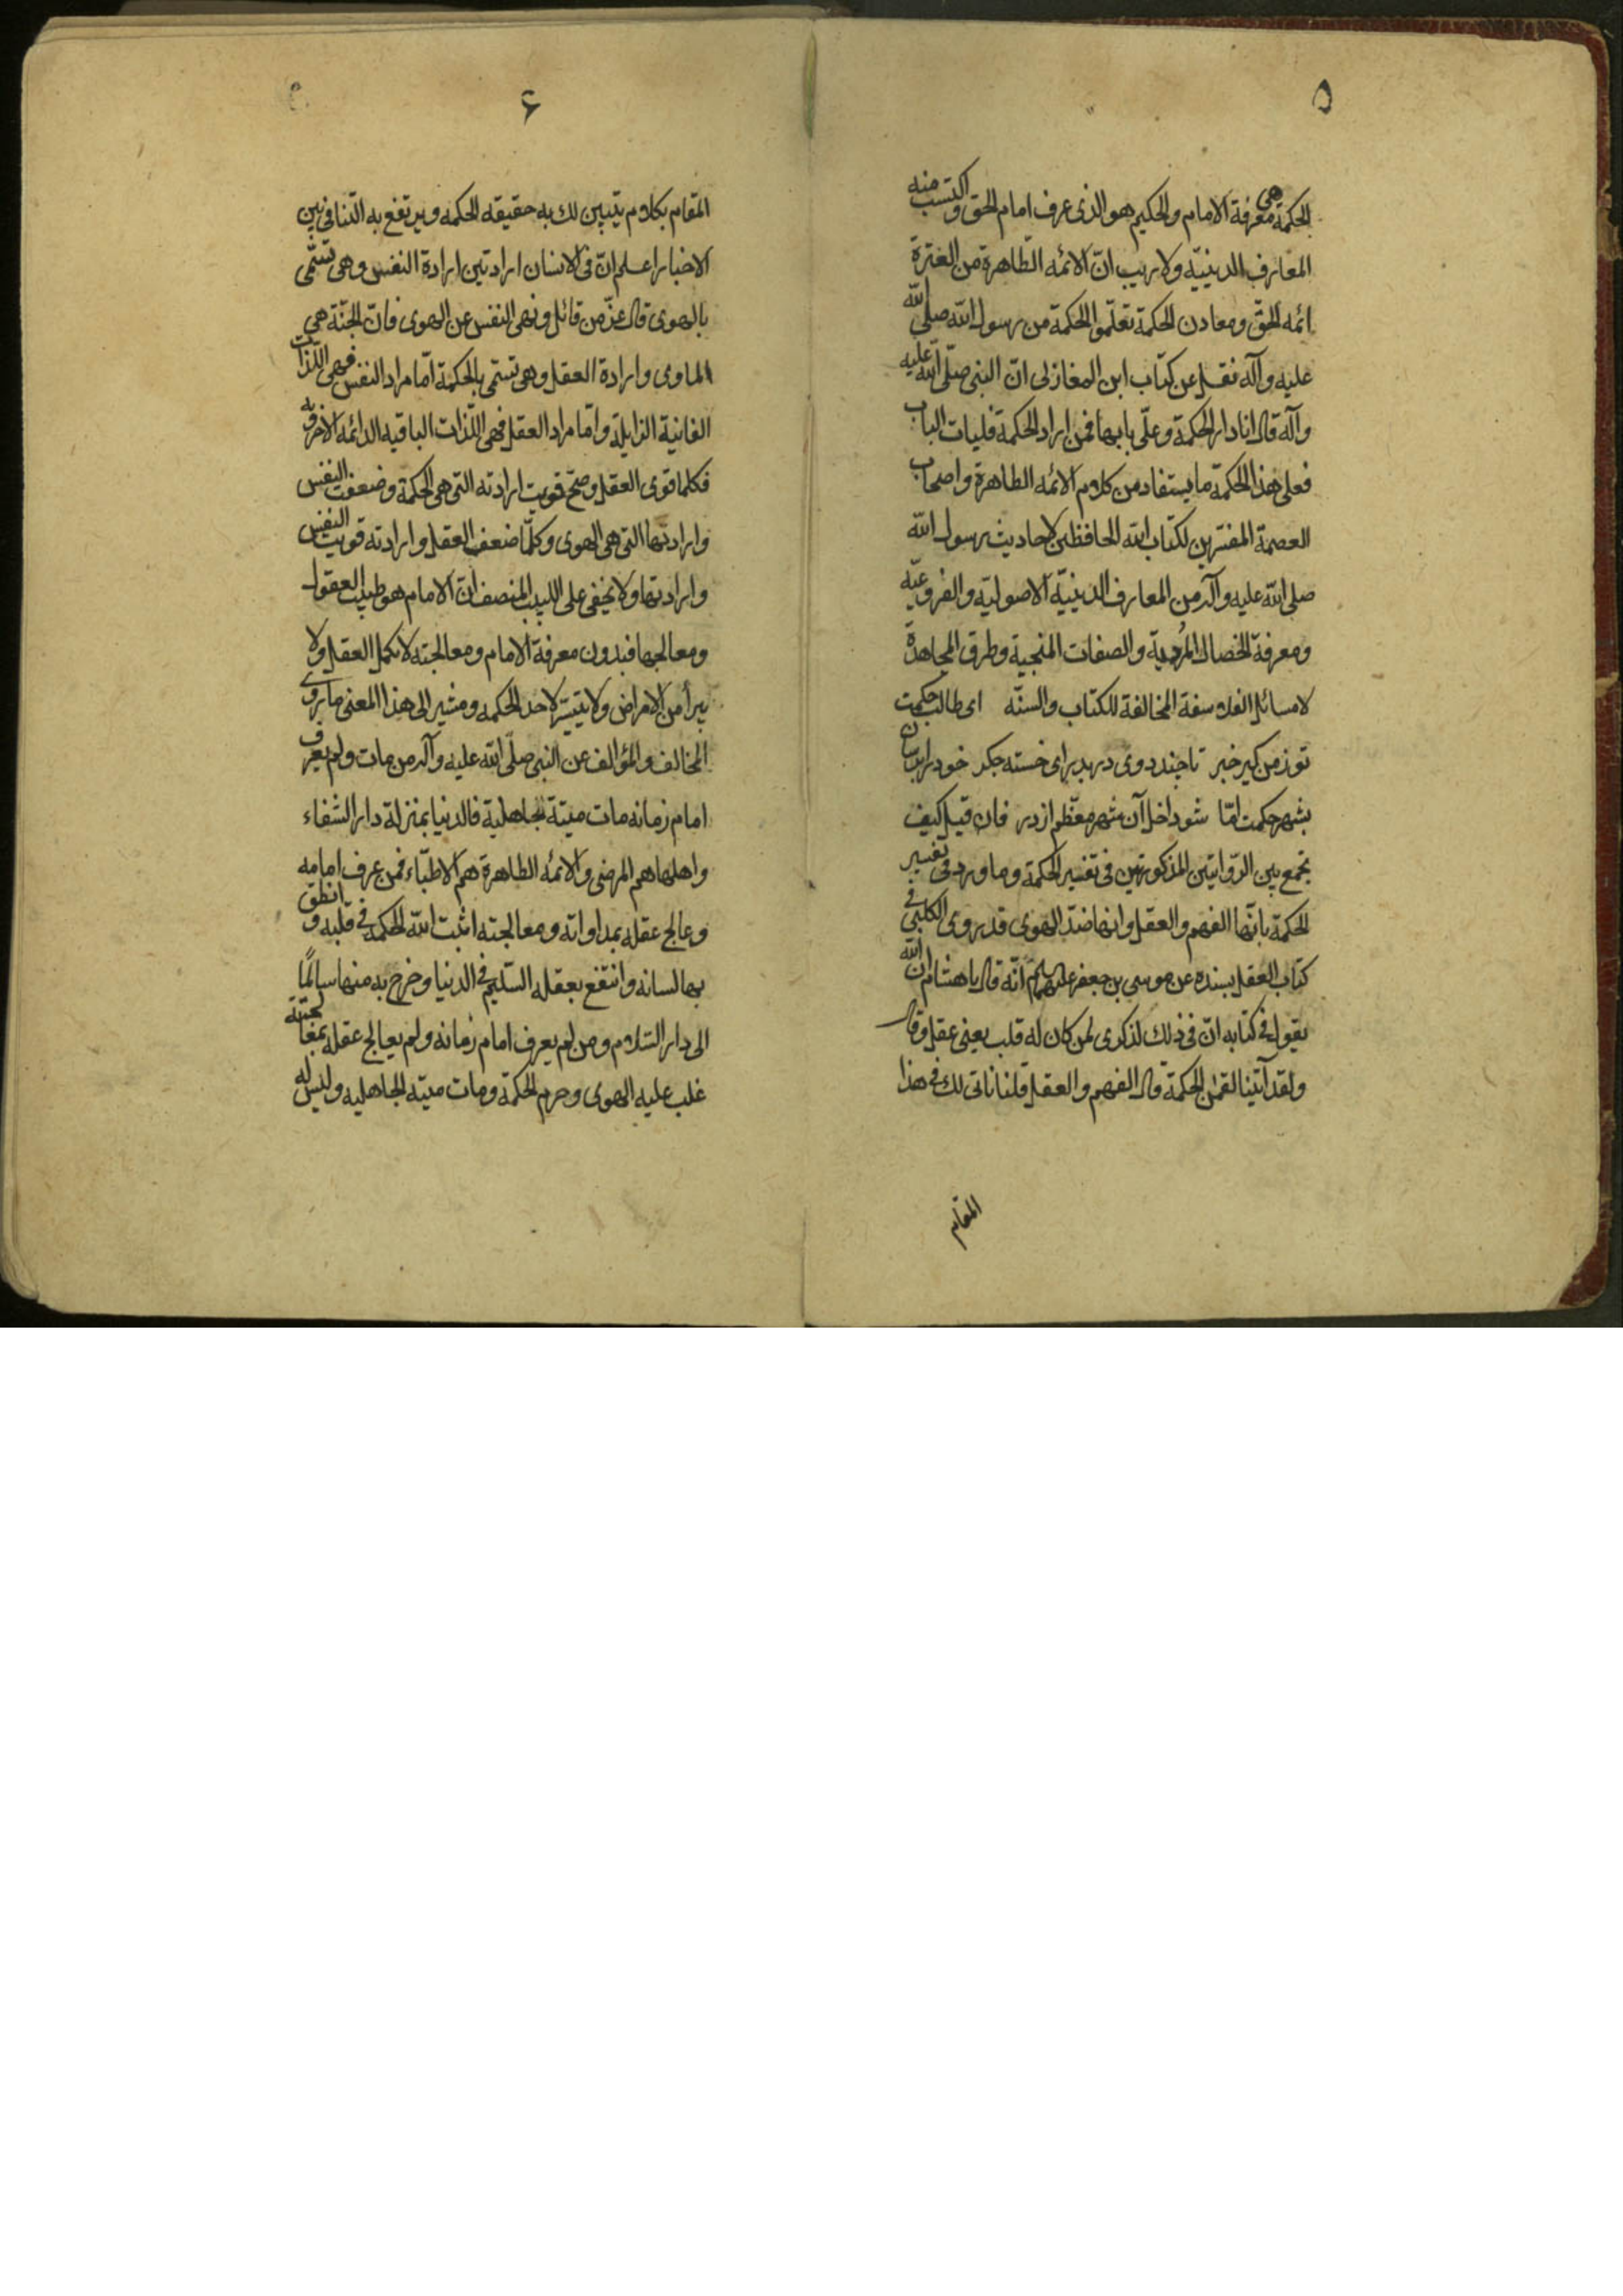 ٥
الحكمة هى معرفة الامام والحكيم هو الذى عرف امام الحق واكتسب منه
المعارف الدينيّة ولا ريب انّ الائمه الطّاهرة من العترة
ائمه الحقّ ومعادن الحكمة تعلّموا الحكمة من رسول الله صلى الله
عليه وآله نقل عن كتاب ابن المغازلى انّ النبى صلّى الله عليه
وآله قال انا دار الحكمة وعلّى بابها فمن اراد الحكمة فليات الباب
فعلى هذا الحكمة ما يستفاد من كلام الائمه الطاهرة واصحاب
العصمة المفسّرين لكتاب الله الحافظين لاحاديث رسول الله
صلى الله عليه وآله من المعارف الدينيّة الاصوليّة والفروعيّه
ومعرفة الخصال المُرديه والصفات المنجية وطرق المجاهدة
لا مسائل الفلاسفة المخالفة للكتاب والسنّه اى طالب حكمت
تو ز من كير خبر تا چند دوى دربدر اى خسته جكر خود را برسان
بشهر حكمت امّا شو داخل آن شهر معظّم از در فان قيل كيف
تجمع بين الرّوايتين المذكورتين فى تفسير الحكمة وما ورد فى تفسير
الحكمة بانّها الفهم والعقل وانها ضدّ الهوى قد روى الكلينى فى
كتاب العقل بسنده عن موسى بن جعفر عليهما السلام انّه قال يا هشام ان الله
يقول فى كتابه انّ فى ذلك لذكرى لمن كان له قلب يعنى عقل وقال
ولقد آتينا لقمٰن الحكمة قال الفهم والعقل قلنا ناتى لك فى هذا
المقام
۶
المقام بكلام يتبين لك به حقيقه الحكمه ويرتفع به التنافى بين
الاخبار اعلم انّ فى الانسان ارادتين ارادة النفس وهى تسمّى
بالهوى قال عزّ من قائل ونهى النفس عن الهوى فانّ الجنّة هى
الماوى وارادة العقل وهى تسمّى بالحكمة امّا مراد النفس فهى اللّذات
الفانية الزايلة وامّا مراد العقل فهى اللّذات الباقيه الدائمه الاخرويه
فكلما قوى العقل وصحّ قويت ارادته التى هى الحكمة وضعفت النفس
وارادتها التى هى الهوى وكلّما ضعف العقل وارادته قويت النفس
وارادتها ولا يخفى على اللبيب المنصف انّ الامام هو طبيب العقول
ومعالجها فبدون معرفة الامام ومعالجته لا يكمل العقل ولا
يبرأ من الامراض ولا يتيسّر لاحد الحكمه ومشير الى هذا المعنى ما يروى
المخالف والمؤالف عن النبى صلّى الله عليه وآله من مات ولم يعرف
امام زمانه مات ميتة جاهلية فالدنيا بمنزلة دار الشفاء
واهلها هم المرضى والائمّه الطاهرة هم الاطبّاء فمن عرف امامه
وعالج عقله بمداواته ومعالجته اثبت الله الحكمه فى قلبه و انطق
بها لسانه وانتفع بعقله السّليم فى الدنيا وخرج به منها سالمًا
الى دار السّلام ومن لم يعرف امام زمانه ولم يعالج عقله بمعالجته
غلب عليه الهوى وحرم الحكمة ومات ميته الجاهليه وليس له